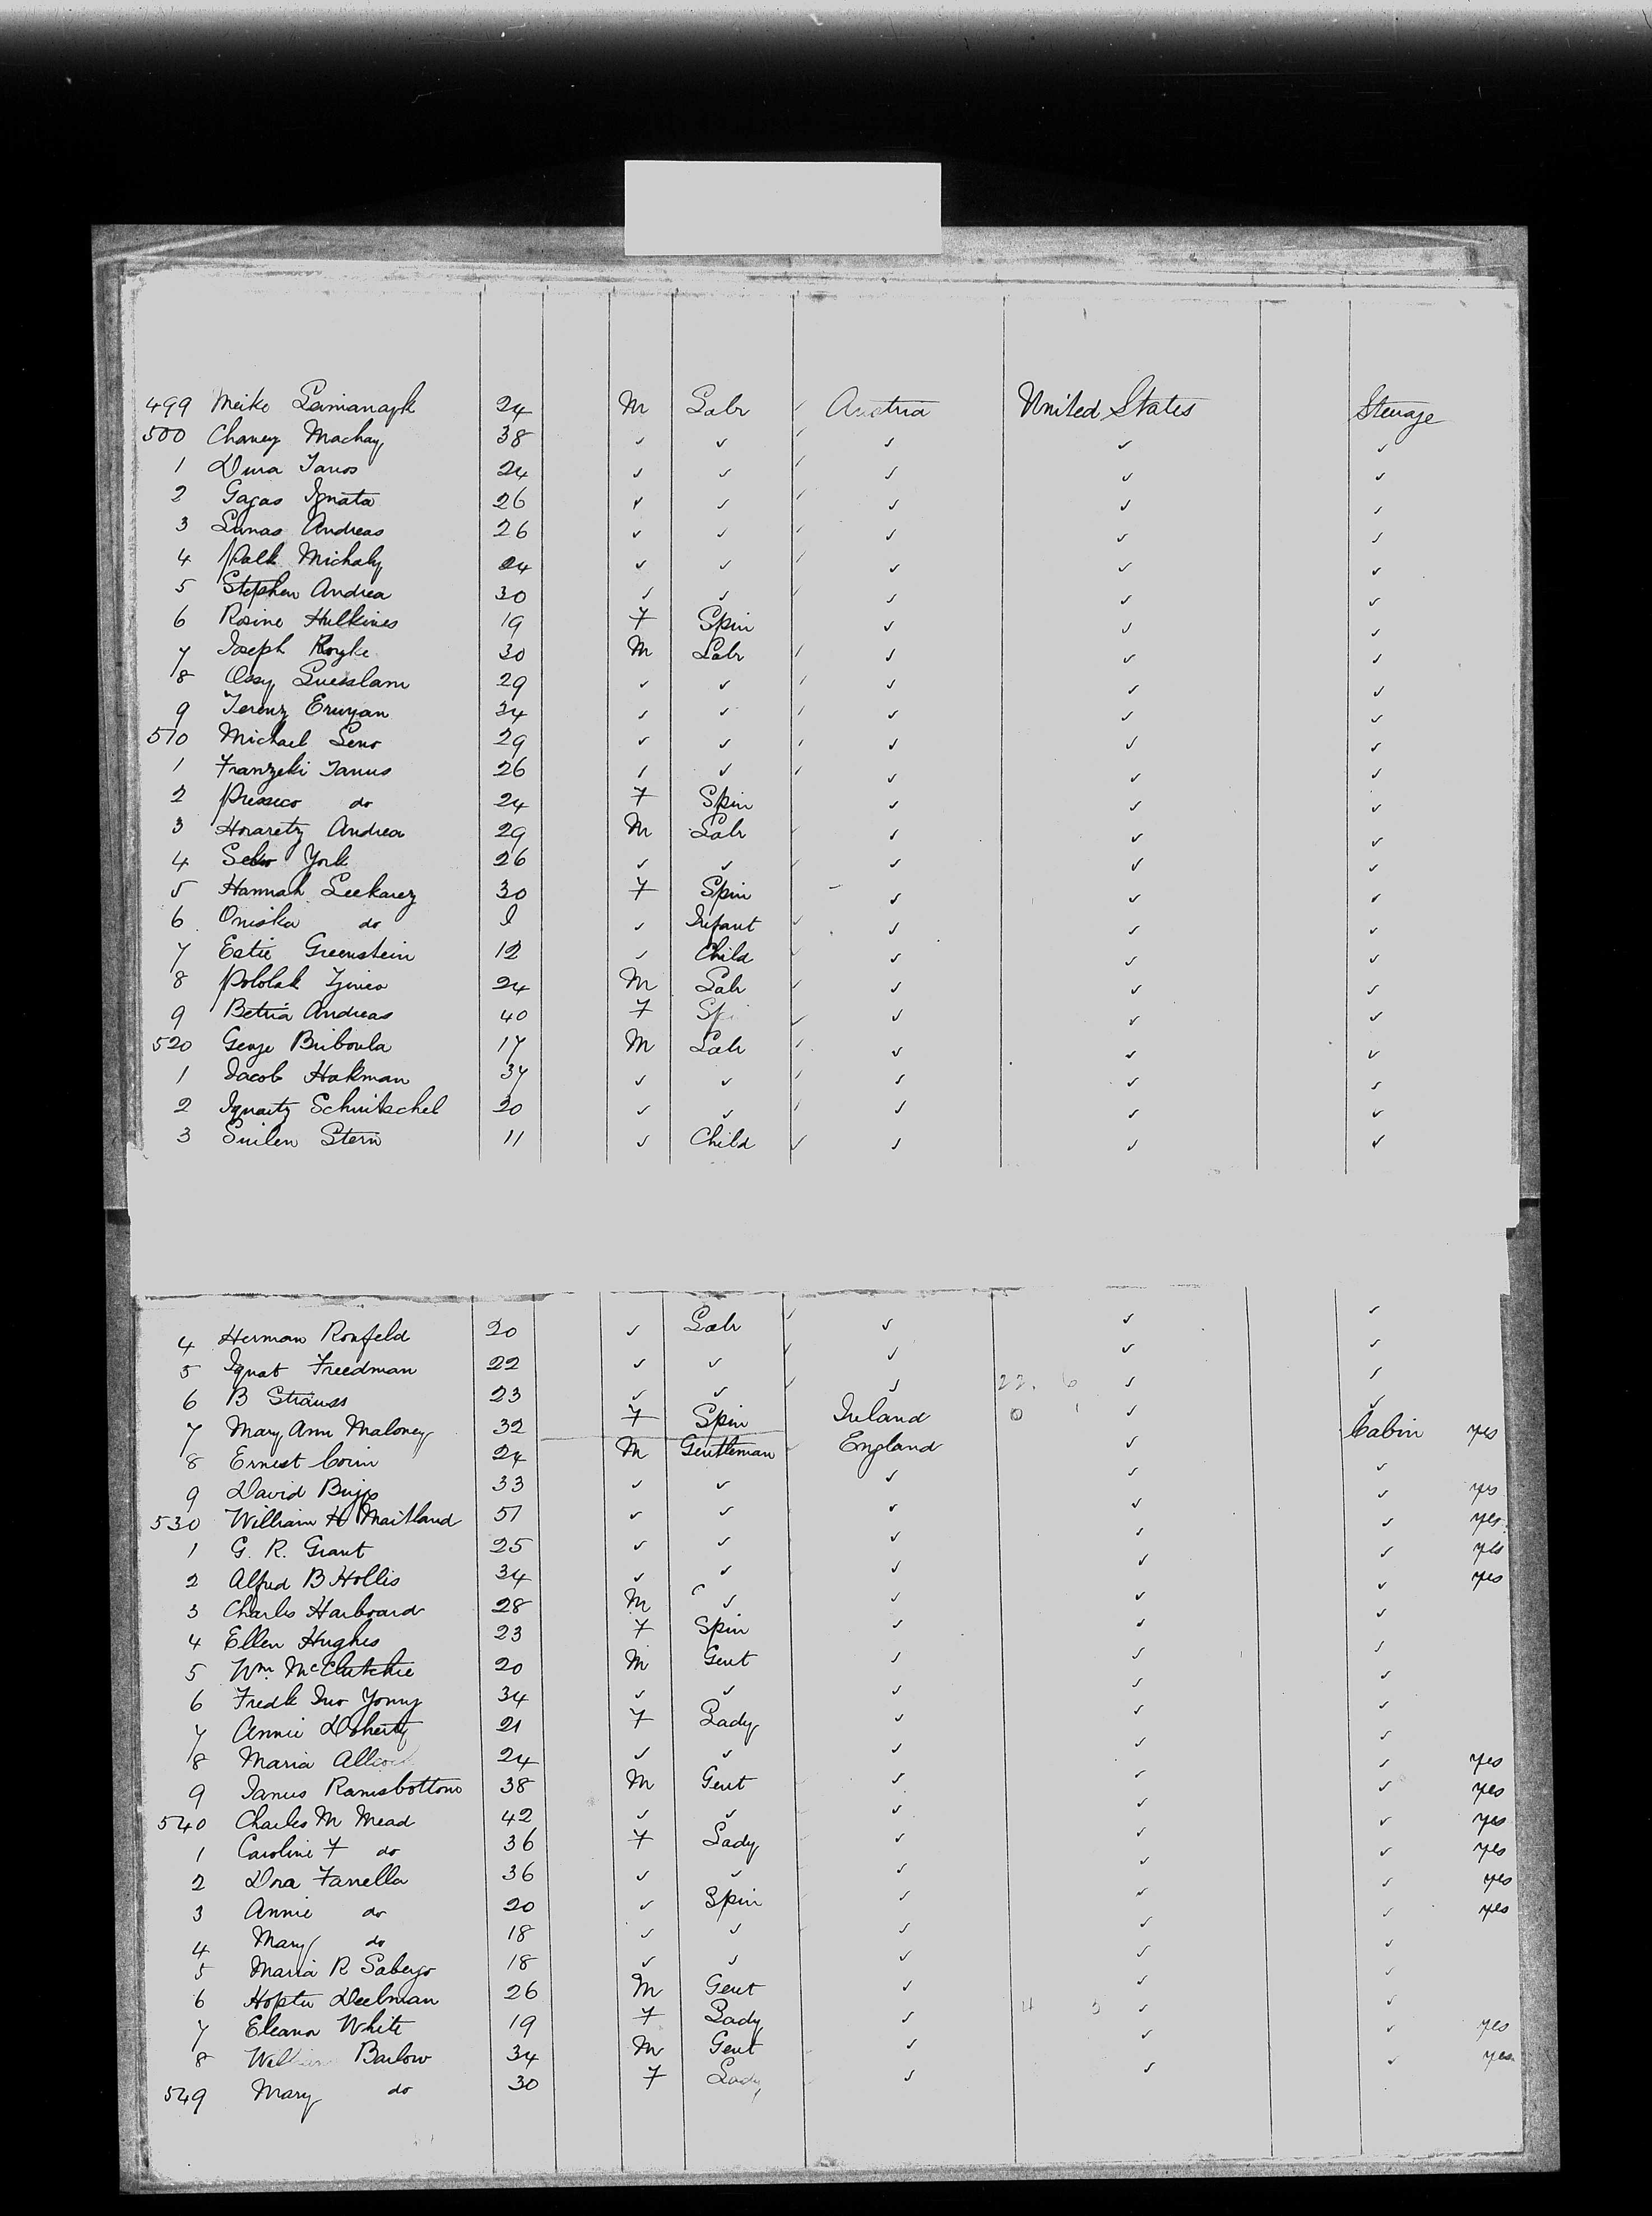 499 Meiko 24 M Labr ✓ Austria United States Steerage
500 Chaney Machay 38 ✓ ✓ ✓ ✓ ✓ ✓
1 Dura Janos 24 ✓ ✓ ✓ ✓ ✓
2 Gagas Ignata 26 ✓ ✓ ✓ ✓ ✓ ✓
3 Lanas Andreas 26 ✓ ✓ ✓ ✓ ✓ ✓
4 Palk Michaly 24 ✓ ✓ ✓ ✓ ✓ ✓
5 Stephen Andrea 30 ✓ ✓ ✓ ✓ ✓ ✓
6 Rosine Hulkines 19 F Spin ✓ ✓ ✓
7 Joseph Royke 30 M Labr ✓ ✓ ✓ ✓
8 Ossy 29 ✓ ✓ ✓ ✓ ✓ ✓
9 Ferenz Eruyan 34 ✓ ✓ ✓ ✓ ✓ ✓
510 Michael Leno 29 ✓ ✓ ✓ ✓ ✓ ✓
1 Franzeki Janus 26 ✓ ✓ ✓ ✓ ✓ ✓
2 Pressico do 24 F Spin ✓ ✓ ✓
3 Horaretz Andrea 29 M Labr ✓ ✓ ✓ ✓
4 York 26 ✓ ✓ ✓ ✓ ✓ ✓
5 Hannah Leekarez 30 F Spin - ✓ ✓ ✓
6 Oniska do ✓ Infant ✓ ✓ ✓ ✓
7 Estie Greenstein 12 ✓ Child ✓ ✓ ✓ ✓
8 Pololak 24 M Labr ✓ ✓ ✓ ✓
9 Betria Andreas 40 F Sp ✓ ✓ ✓ ✓
520 George Briboula 17 M Labr ✓ ✓ ✓ ✓
1 Jacob Hakman 37 ✓ ✓ ✓ ✓ ✓ ✓
2 Ignaitz Schnitschel 20 ✓ ✓ ✓ ✓ ✓ ✓
3 Suilen Stern 11 ✓ Child ✓ ✓ ✓ ✓
4 Herman Ronfeld 20 ✓ Labr ✓ ✓ ✓ ✓
5 Ignat Freedman 22 ✓ ✓ ✓ ✓ ✓ ✓
6 B Strauss 23 ✓ ✓ ✓ ✓ ✓ ✓
7 Mary Ann Maloney 32 F Spin Ireland ✓ ✓
8 Ernest Corin 24 M Gentleman England ✓ Cabin yes
9 David Briggs 33 ✓ ✓ ✓ ✓ ✓
530 William H Maitland 51 ✓ ✓ ✓ ✓ ✓ yes
1 G. R. Grant 25 ✓ ✓ ✓ ✓ ✓ yes
2 Alfred B Hollis 34 ✓ ✓ ✓ ✓ ✓ yes
3 Charles Harboard 28 M ✓ ✓ ✓ ✓ yes
4 Ellen Hughes 23 F Spin ✓ ✓ ✓
5 Wm McClutchie 20 M Gent ✓ ✓ ✓
6 Fredk Jno Young 34 ✓ ✓ ✓ ✓ ✓
7 Annie Doherty 21 F Lady ✓ ✓ ✓
8 Maria 24 ✓ ✓ ✓ ✓ ✓
9 James Ramsbottom 38 M Gent ✓ ✓ ✓ yes
540 Charles M Mead 42 ✓ ✓ ✓ ✓ ✓ yes
1 Caroline F do 36 F Lady ✓ ✓ ✓ yes
2 Dora Farrella 36 ✓ ✓ ✓ ✓ ✓ yes
3 Annie do 20 ✓ Spin ✓ ✓ ✓ yes
4 Mary do 18 ✓ ✓ ✓ ✓ ✓ yes
5 Maria R 18 ✓ ✓ ✓ ✓ ✓
6 Deelman 26 M Gent ✓ ✓ ✓
7 Eleanor White 19 F Lady ✓ ✓ ✓
8 William Barlow 34 M Gent ✓ ✓ ✓ yes
549 Mary do 30 F Lady ✓ ✓ ✓ yes